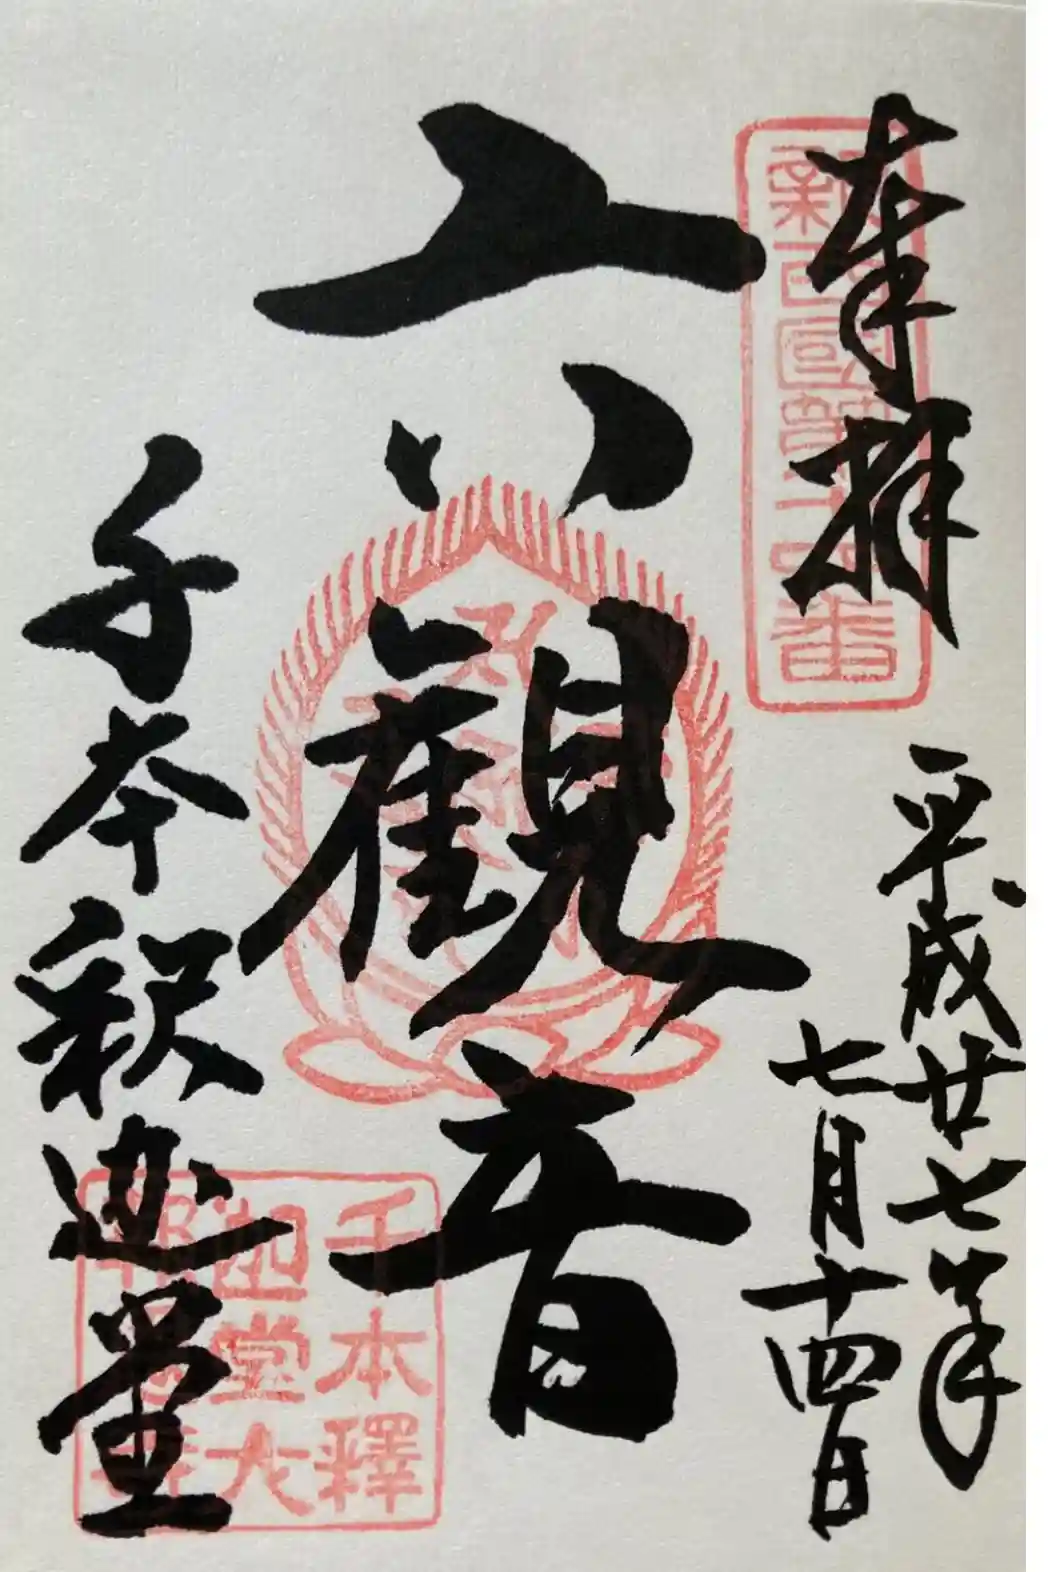 奉拝
平成廿七年
七月十四日
六観音
千本釈迦堂
新西国第十六番
千本釋
迦堂大
報恩寺